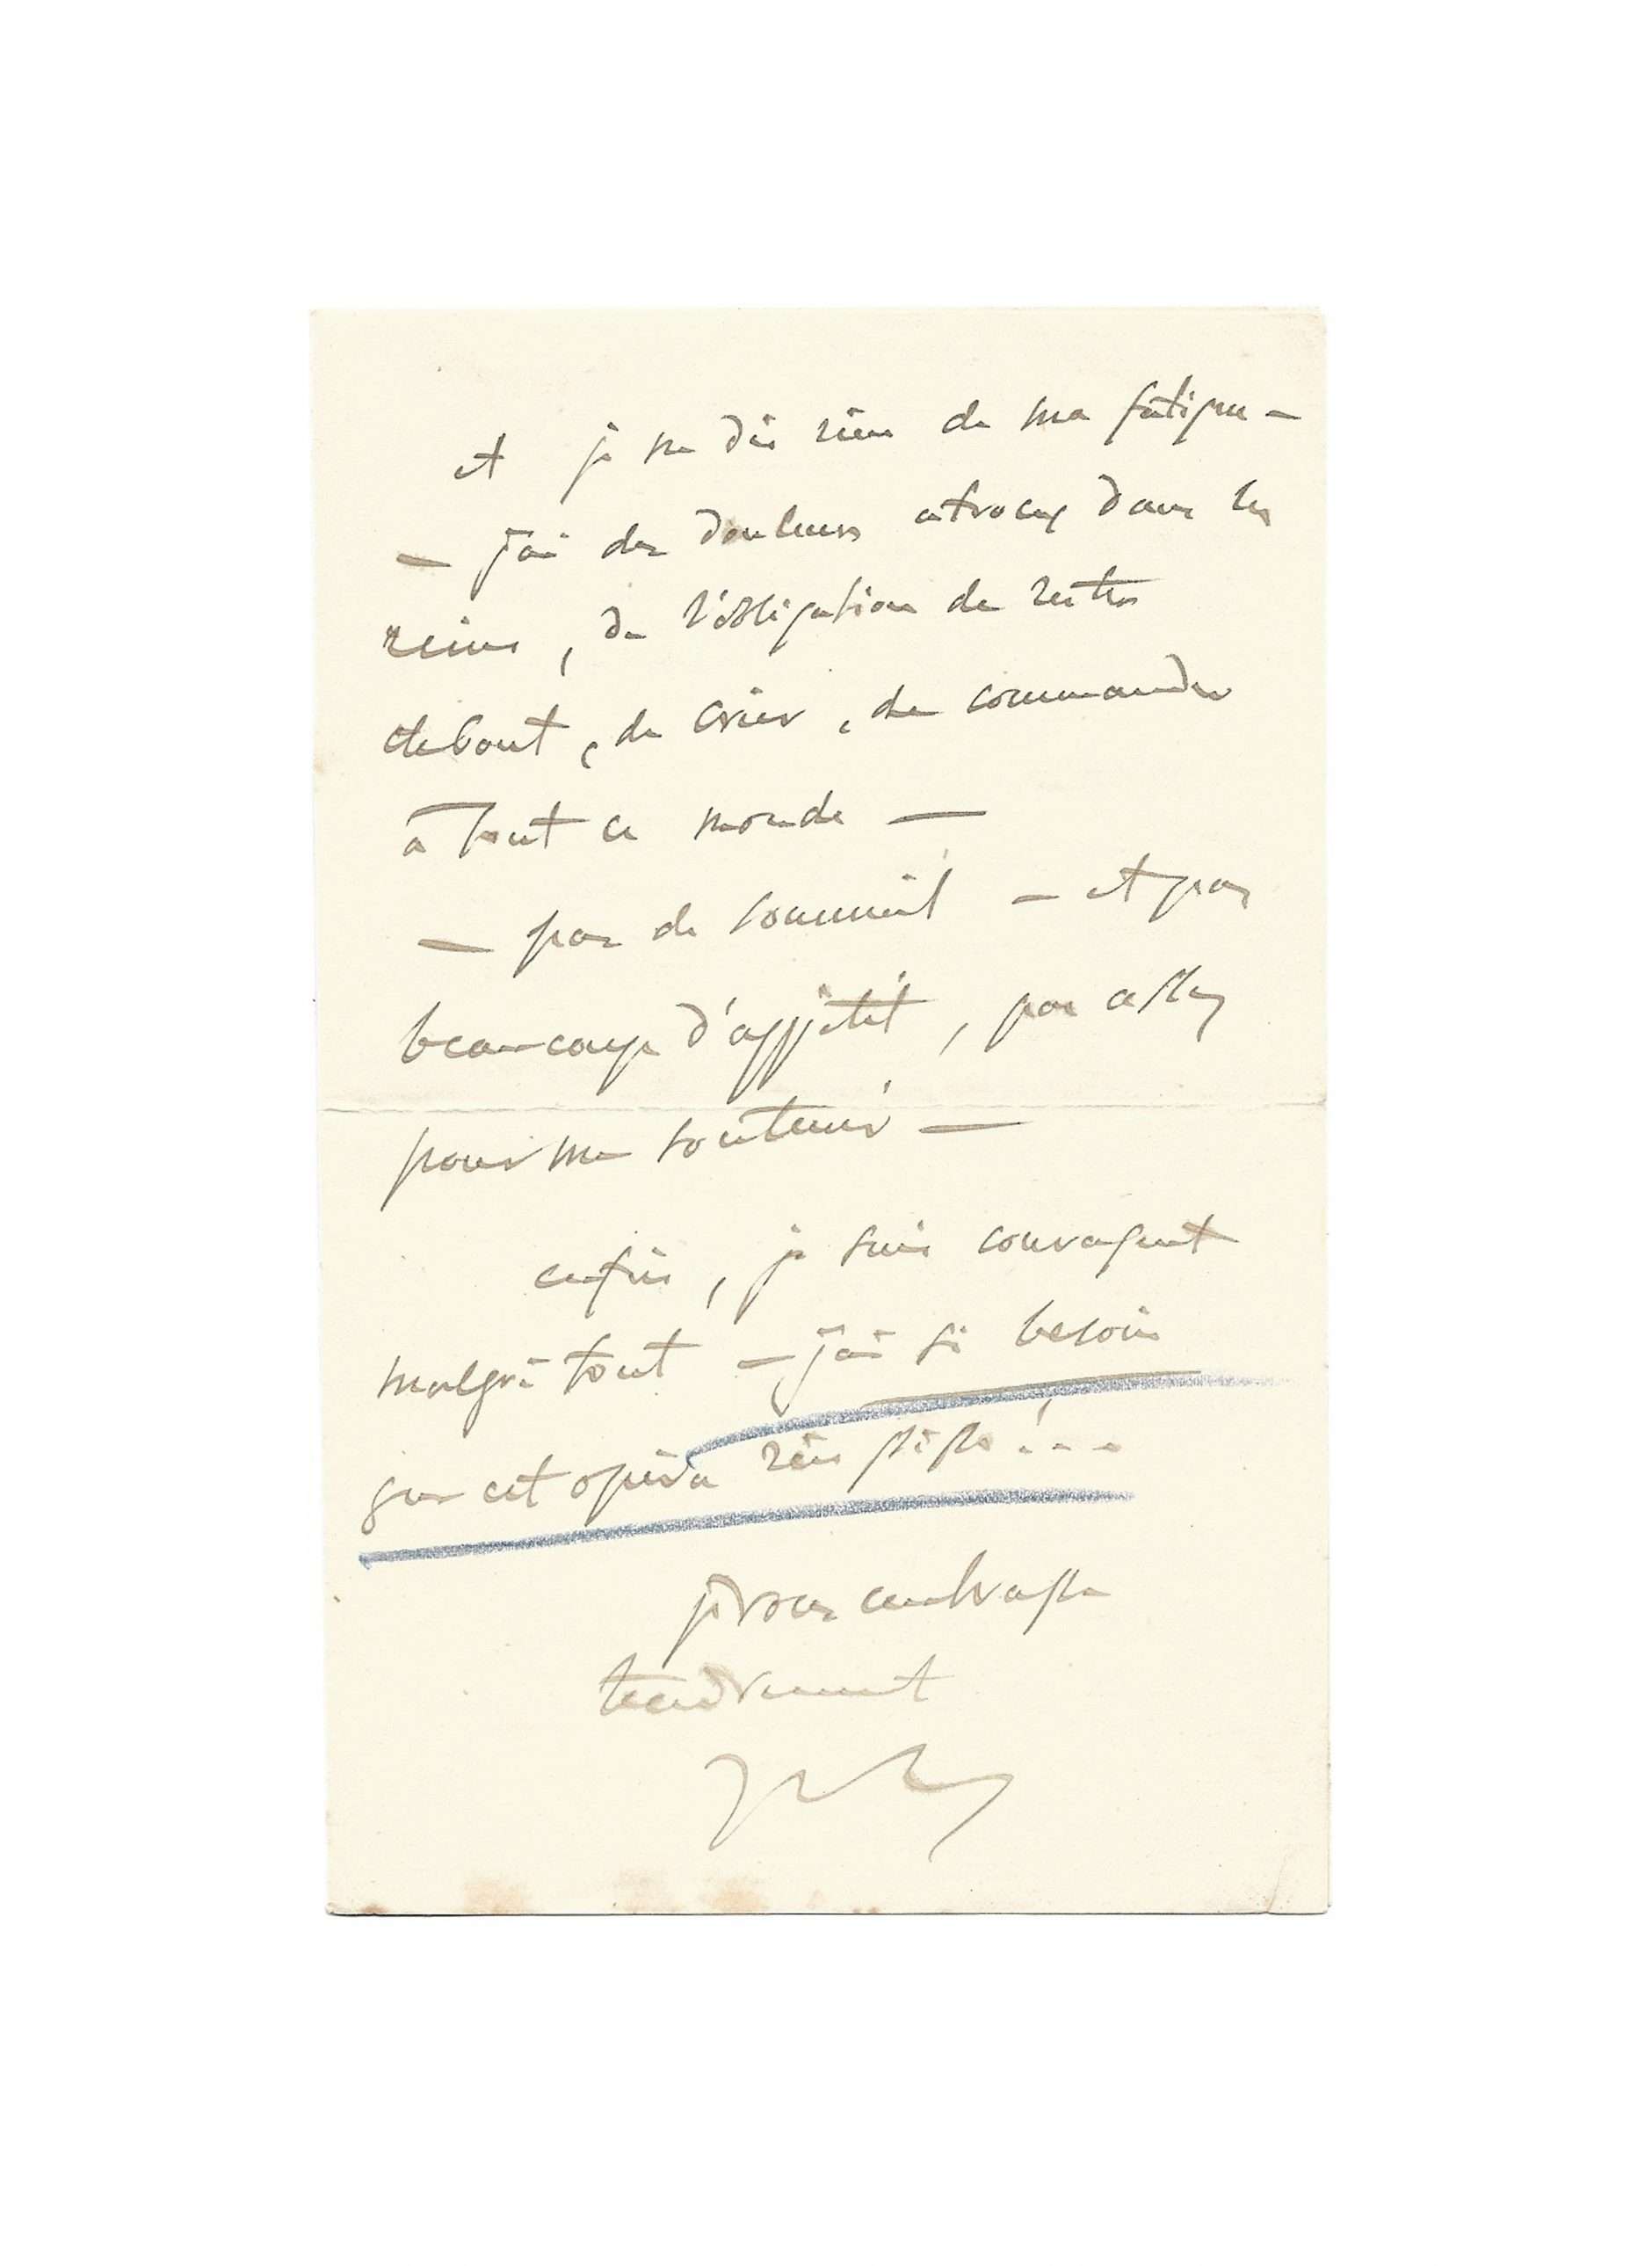 et je ne dis rien de ma fatigue —
— j'ai des douleurs atroces dans les
reins, de l'obligation de rester
debout, de crier, de commander
à tout ce monde —
— pas de sommeil — et pas
beaucoup d'appétit, pas assez
pour me soutenir —
enfin, je suis courageux
malgré tout — j'ai si besoin
que cet opéra réussisse! . . .
je vous embrasse
tendrement